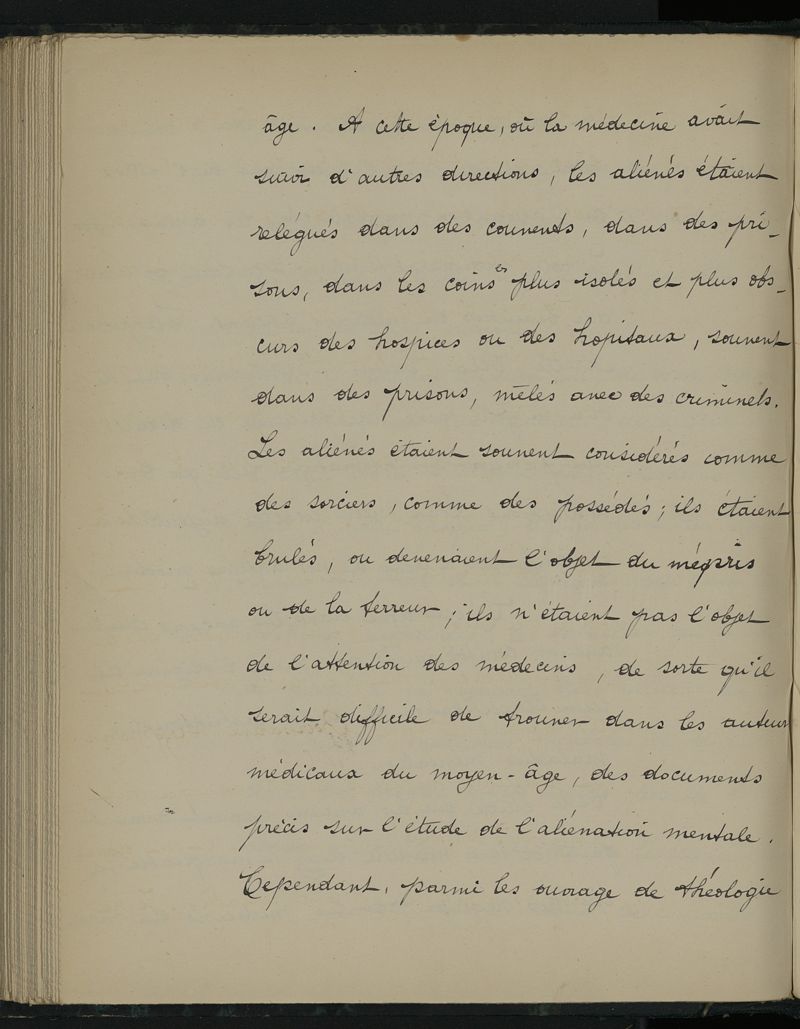 âge. A cette époque, où la médecine avait
suivi d'autres directions, les aliénés étaient
relégués dans des couvents, dans des pri_
sons, dans les coins les plus isolés et plus obs_
curs des hospices ou des hopitaux, souvent
dans des prisons, mêlés avec des criminels.
Les aliénés étaient souvent considérés comme
des sorciers, comme des possédés; ils étaient
brulés, ou devenaient l'objet du mépris
ou de la terreur; ils n'étaient pas l'objet
de l'attention des médecins, de sorte qu'il
serait difficile de trouver dans les auteurs
médicaux du moyen-âge, des documents
précis sur l'étude de l'aliénation mentale.
Cependant, parmi les ouvrage de théologie